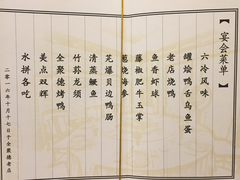 【宴会菜单】
六冷风味
罐烩鸭舌乌鱼蛋
老店烧鸭
鱼香虾球
藤椒肥牛玉掌
葱烧海参
芫爆贝边鸭肠
清蒸鳜鱼
竹荪龙须
全聚德烤鸭
美点双辉
水拼各吃
二零一六年十月十七日于全聚德老店